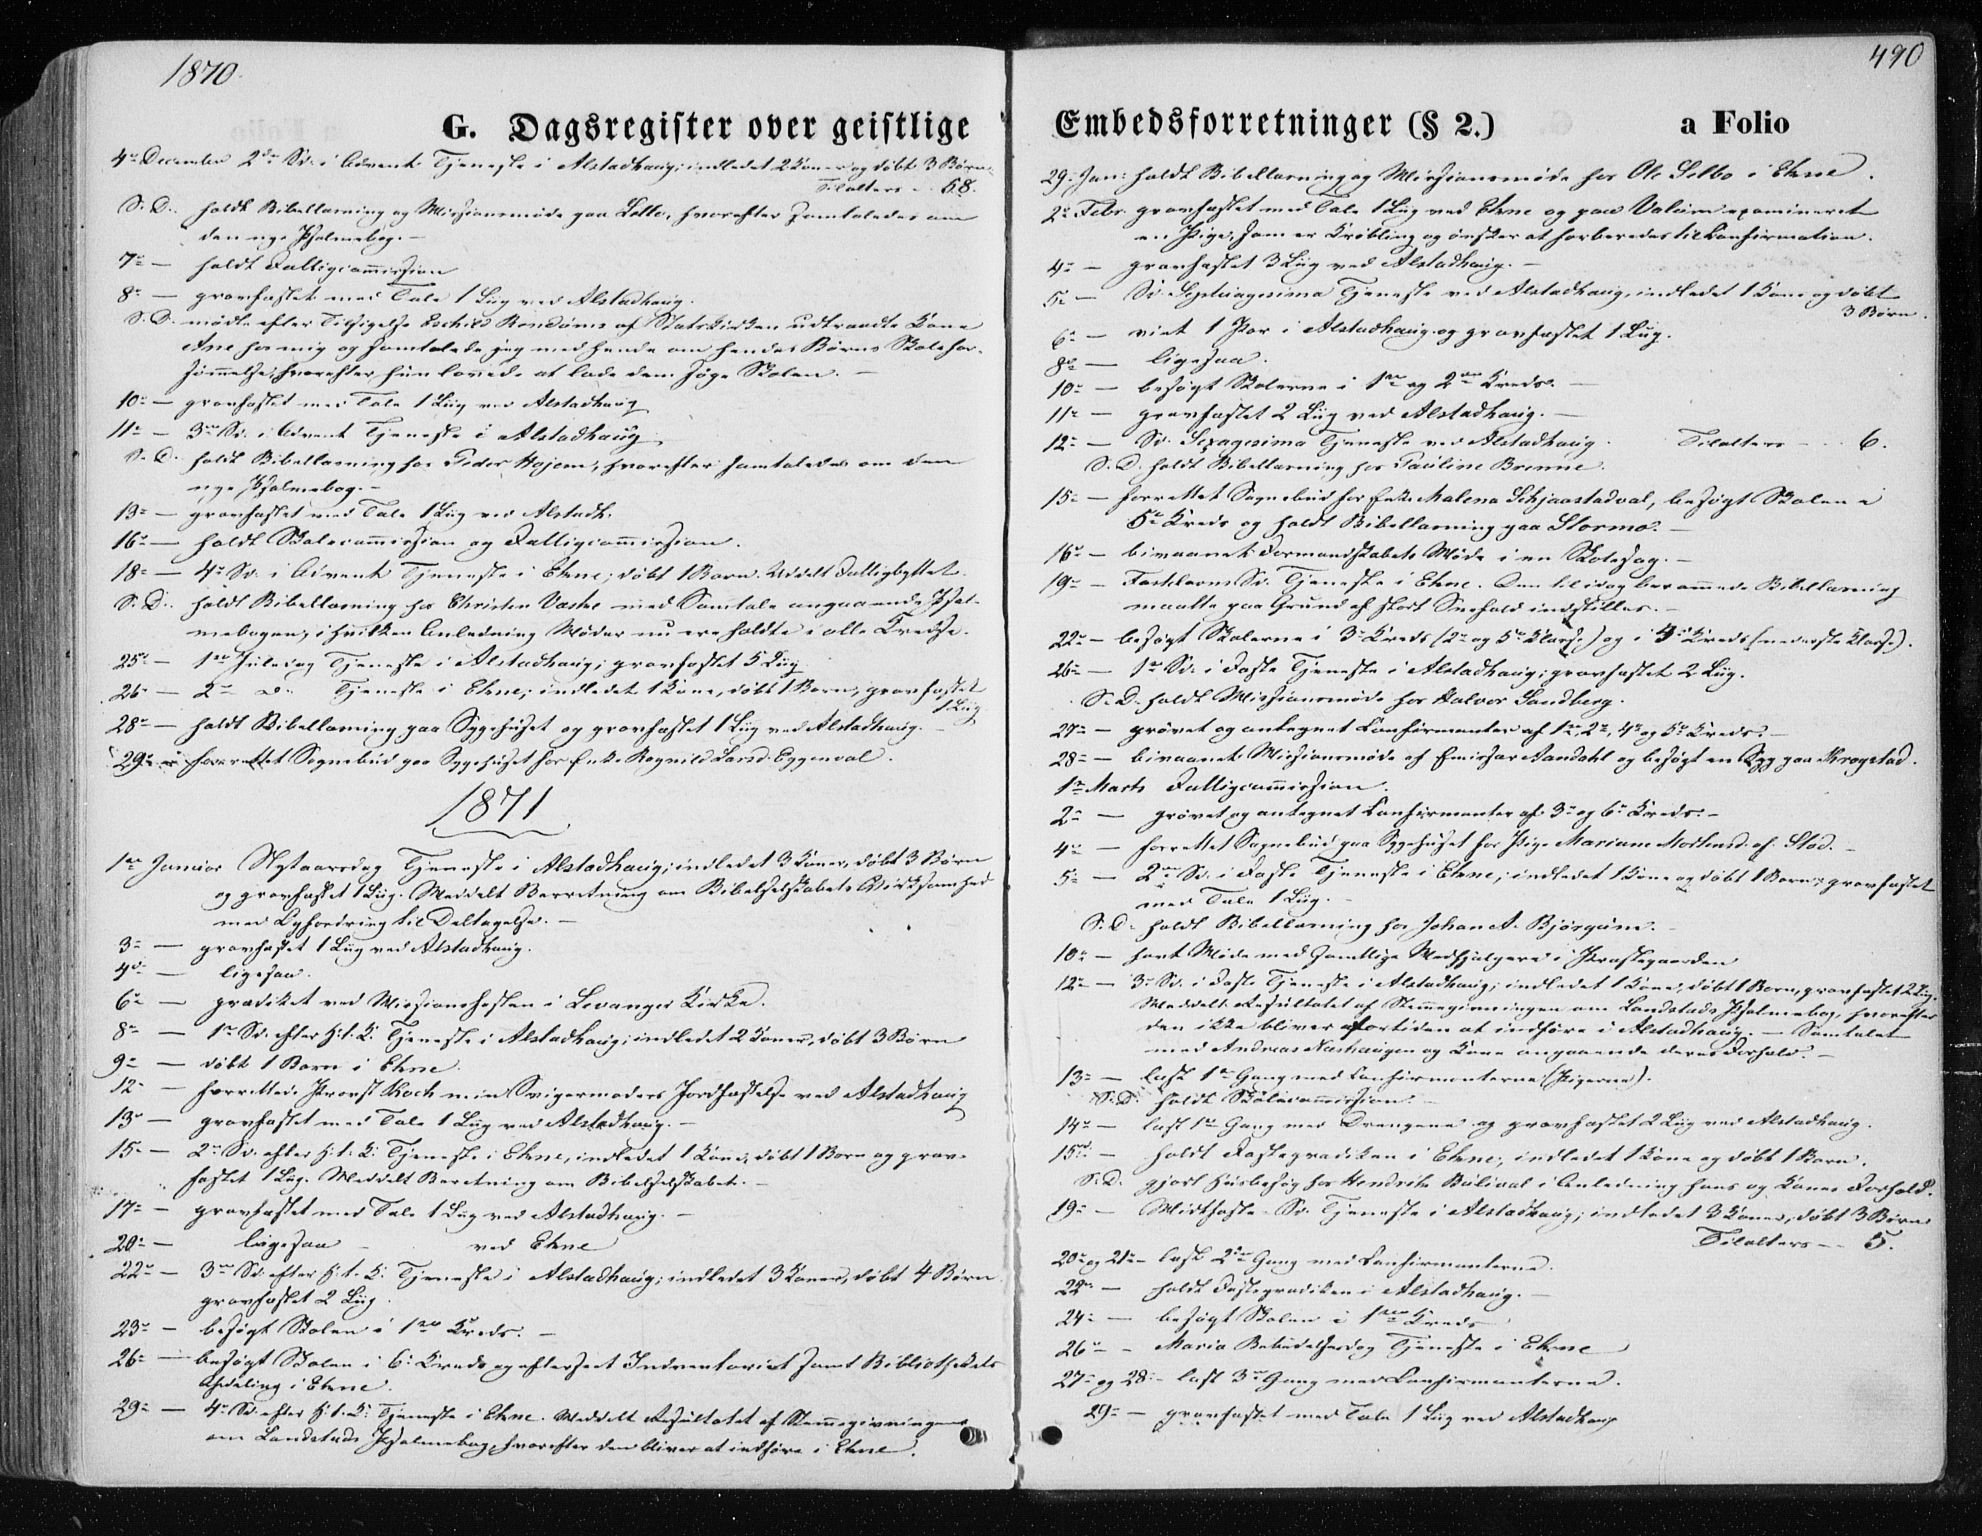 1870.
G. Dagsregister over geistlige
4de December 2den Sd. i Advent Tjeneste i Alstadhaug; indledet 2 Koner og døbt 3 Børn.
Tilalters - 58.
S. D. holdt Bibellæsning og Missionsmøde paa, hvorefter samtaledes om
den nye Psalmebog. -
7de - holdt Fattigcommission
8de - gravfæstet med Tale 1 Liig ved Alstadhaug.
S. D. mødte efter Tilsigelse af Statskirken udtraadte Kone
Ane for mig og samtalede jeg med hende om hendes Børns Skolefor-
sømmelse, hvorefter hun lovede at lade dem søge Skolen. -
10de - gravfæstet med Tale 1 Liig ved Alstadhaug
11te - 3die Sd. i Advent Tjeneste i Alstadhaug
S. D. holdt Bibellæsning hos Peder Hojem, hvorefter samtaledes om den
nye Psalmebog. -
13de - gravfæstet med Tale 1 Liig ved Alstadh.
16de - holdt Skolecommission og Fattigcommission.
18de - 4de Sd. i Advent Tjeneste i Ekne; døbt 1 Barn. Uddelt Fattigbyttet.
S. D. holdt Bibellæsning hos Christen med Samtale angaaende Psal-
mebogen, i hvilken Anledning Møder nu ere holdte i alle Kredse.
25de - 1ste Juledag Tjeneste i Alstadhaug; gravfæstet 5 Liig
26de - 2den D. Tjeneste i Ekne; indledet 1 Kone, døbt 1 Barn, gravfæstet
1 Liig
28de - holdt Bibellæsning paa Sygehuset og gravfæstet 1 Liig ved Alstadhaug. -
29de - forrettet Sognebud paa Sygehuset hos Enke Ragnild Larsd. Eggenval.
1871.
1ste Januar Nytaarsdag Tjeneste i Alstadhaug; indledet 3 Koner, døbt 3 Børn
og gravfæstet 1 Liig. Meddelt Berretning om Bibelselskabets Virksomhed
med Opfordring til Deltagelse. -
3die - gravfæstet 1 Liig ved Alstadhaug.
4de - ligesaa.
6te - prædiket ved Missionsfesten i Levanger Kirke.
8de - 1ste Sd. efter H. t. K. Tjeneste i Alstadhaug; indledet 2 Koner, døbt 3 Børn
9de - døbt 1 Barn i Ekne.
12te - forrettede Provst Koch min Svigermoders Jordfæstelse ved Alstadhaug
13de - gravfæstet med Tale 1 Liig ved Alstadhaug. -
15de - 2den Sd. efter H. t. K. Tjeneste i Ekne, indledet 1 Kone, døbt 1 Barn og grav-
fæstet 1 Liig. Meddelt Beretning om Bibelselskabet. -
17de - gravfæstet med Tale 1 Liig ved Alstadhaug. -
20de - ligesaa - ved Ekne
22de - 3die Sd. efter H. t. K. Tjeneste i Alstadhaug; indledet 3 Koner, døbt 4 Børn
gravfæstet 2 Liig.
23de - besøgt Skolen i 1ste Kreds. -
26de - besøgt Skolen i 6te Kreds og efterseet Inventariet samt Bibliothekets
Afdeling i Ekne.
29de - 4de Sd. efter H. t. K. Tjeneste i Ekne. Meddelt Resultatet af Stemmegivningen
om Landstads Psalmebog, hvorefter den bliver at indføre i Ekne.
490
Embedsforretninger (§ 2.) a Folio
29. Jan: holdt Bibellæsning og Missionsmøde hos Ole Selbo i Ekne.
2den Febr. gravfæstet med Tale 1 Liig ved Ekne og paa examineret
en Pige, som er Krøbling og ønsker at forberedes til Confirmation.
4de - gravfæstet 3 Liig ved Alstadhaug. -
5te - Sd. Septuagesima Tjeneste ved Alstadhaug, indledet 1 Kone og døbt
3 Børn.
6te - viet 1 Par i Alstadhaug og gravfæstet 1 Liig.
8de - ligesaa.
10de - besøgt Skolerne i 1ste og 2den Kreds. -
11te - gravfæstet 2 Liig ved Alstadhaug. -
12te - Sd. Sexagesima Tjeneste ved Alstadhaug. Tilalters - - 6.
S. D. holdt Bibellæsning hos Pauline Brenne.
15de - forrettet Sognebud hos Enke Malena Schjaastadval, besøgt Skolen i
5te Kreds og holdt Bibellæsning paa Stormo. -
16de - bivaanet Formandskabets Møde i en Skolesag. -
19de - Fastelavns Sd. Tjeneste i Ekne. Den til idag berammede Bibellæsning
maatte paa Grund af stort Snefald indstilles. -
22de - besøgt Skolerne i 3die Kreds (2den og 5te Klasse) og i 4de Kreds (nederste Klasse).
26de - 1ste Sd. i Faste Tjeneste i Alstadhaug; gravfæstet 2 Liig.
S. D. holdt Missionsmøde hos Halvor Sandberg.
27de - prøvet og antegnet Confirmanter af 1ste, 2den, 4de og 5te Kreds. -
28de - bivaanet Missionsmøde af Emissær Aandahl og besøgt en Syg paa Krogstad.
1ste Marts Fattigcommission.
2den - prøvet og antegnet Confirmanter af 3die og 6te Kreds. -
4de - forrettet Sognebud paa Sygehuset for Pige Mariam Mortensd. af Stod. -
5te - 2den Sd. i Faste Tjeneste i Ekne; indledet 1 Kone og døbt 1 Barn; gravfæstet
med Tale 1 Liig. -
S. D. holdt Bibellæsning hos Johan A. Bjørgum. -
10de - havt Møde med samtlige Medhjælpere i Præstegaarden
12te - 3die Sd. i Faste Tjeneste i Alstadhaug; indledet 1 Kone, døbt 1 Barn, gravfæstet 2 Liig.
Meddelt Resultatet af Stemmegivningen om Landstads Psalmebog, hvorefter
den ikke bliver fortiden at indføre i Alstadhaug. - Samtalet
med Andreas Næshaugen og Kone angaaende deres Forhold. -
13de - læst 1ste Gang med Confirmanterne (Pigerne).
S. D. holdt Skolecommission. -
14de - læst 1ste Gang med Drengene og gravfæstet 2 Liig ved Alstadhaug.
15de - holdt Fasteprædiken i Ekne; indledet 1 Kone og døbt 1 Barn.
S. D. gjort Husbesøg hos Hendrik i Anledning hans og Kones Forhold.
19de - Midfaste-Sd. Tjeneste i Alstadhaug; indledet 3 Koner, døbt 3 Børn
Tilalters - - 5.
20de og 21de - læst 2den Gang med Confirmanterne.
22de - holdt Fasteprædiken i Alstadhaug. -
24de - besøgt Skolen i 1ste Kreds
26de - Maria Bebudelsesdag Tjeneste i Ekne
27de og 28de - læst 3die Gang med Confirmanterne.
29de - gravfæstet med Tale 1 Liig ved Alstadhaug